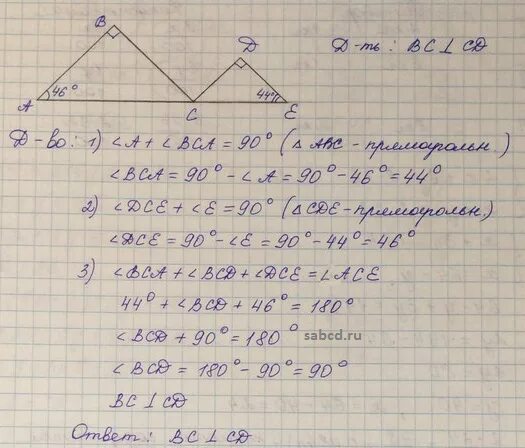 B
D
46°
44°
A
C
E
Д-ть: BC ⊥ CD
Д-во: 1) ∠A + ∠BCA = 90° (△ABC - прямоугольн.)
∠BCA = 90° - ∠A = 90° - 46° = 44°
2) ∠DCE + ∠E = 90° (△CDE - прямоугольн.)
∠DCE = 90° - ∠E = 90° - 44° = 46°
3) ∠BCA + ∠BCD + ∠DCE = ∠ACE
44° + ∠BCD + 46° = 180°
sabcd.ru
∠BCD + 90° = 180°
∠BCD = 180° - 90° = 90°
BC ⊥ CD
Ответ: BC ⊥ CD